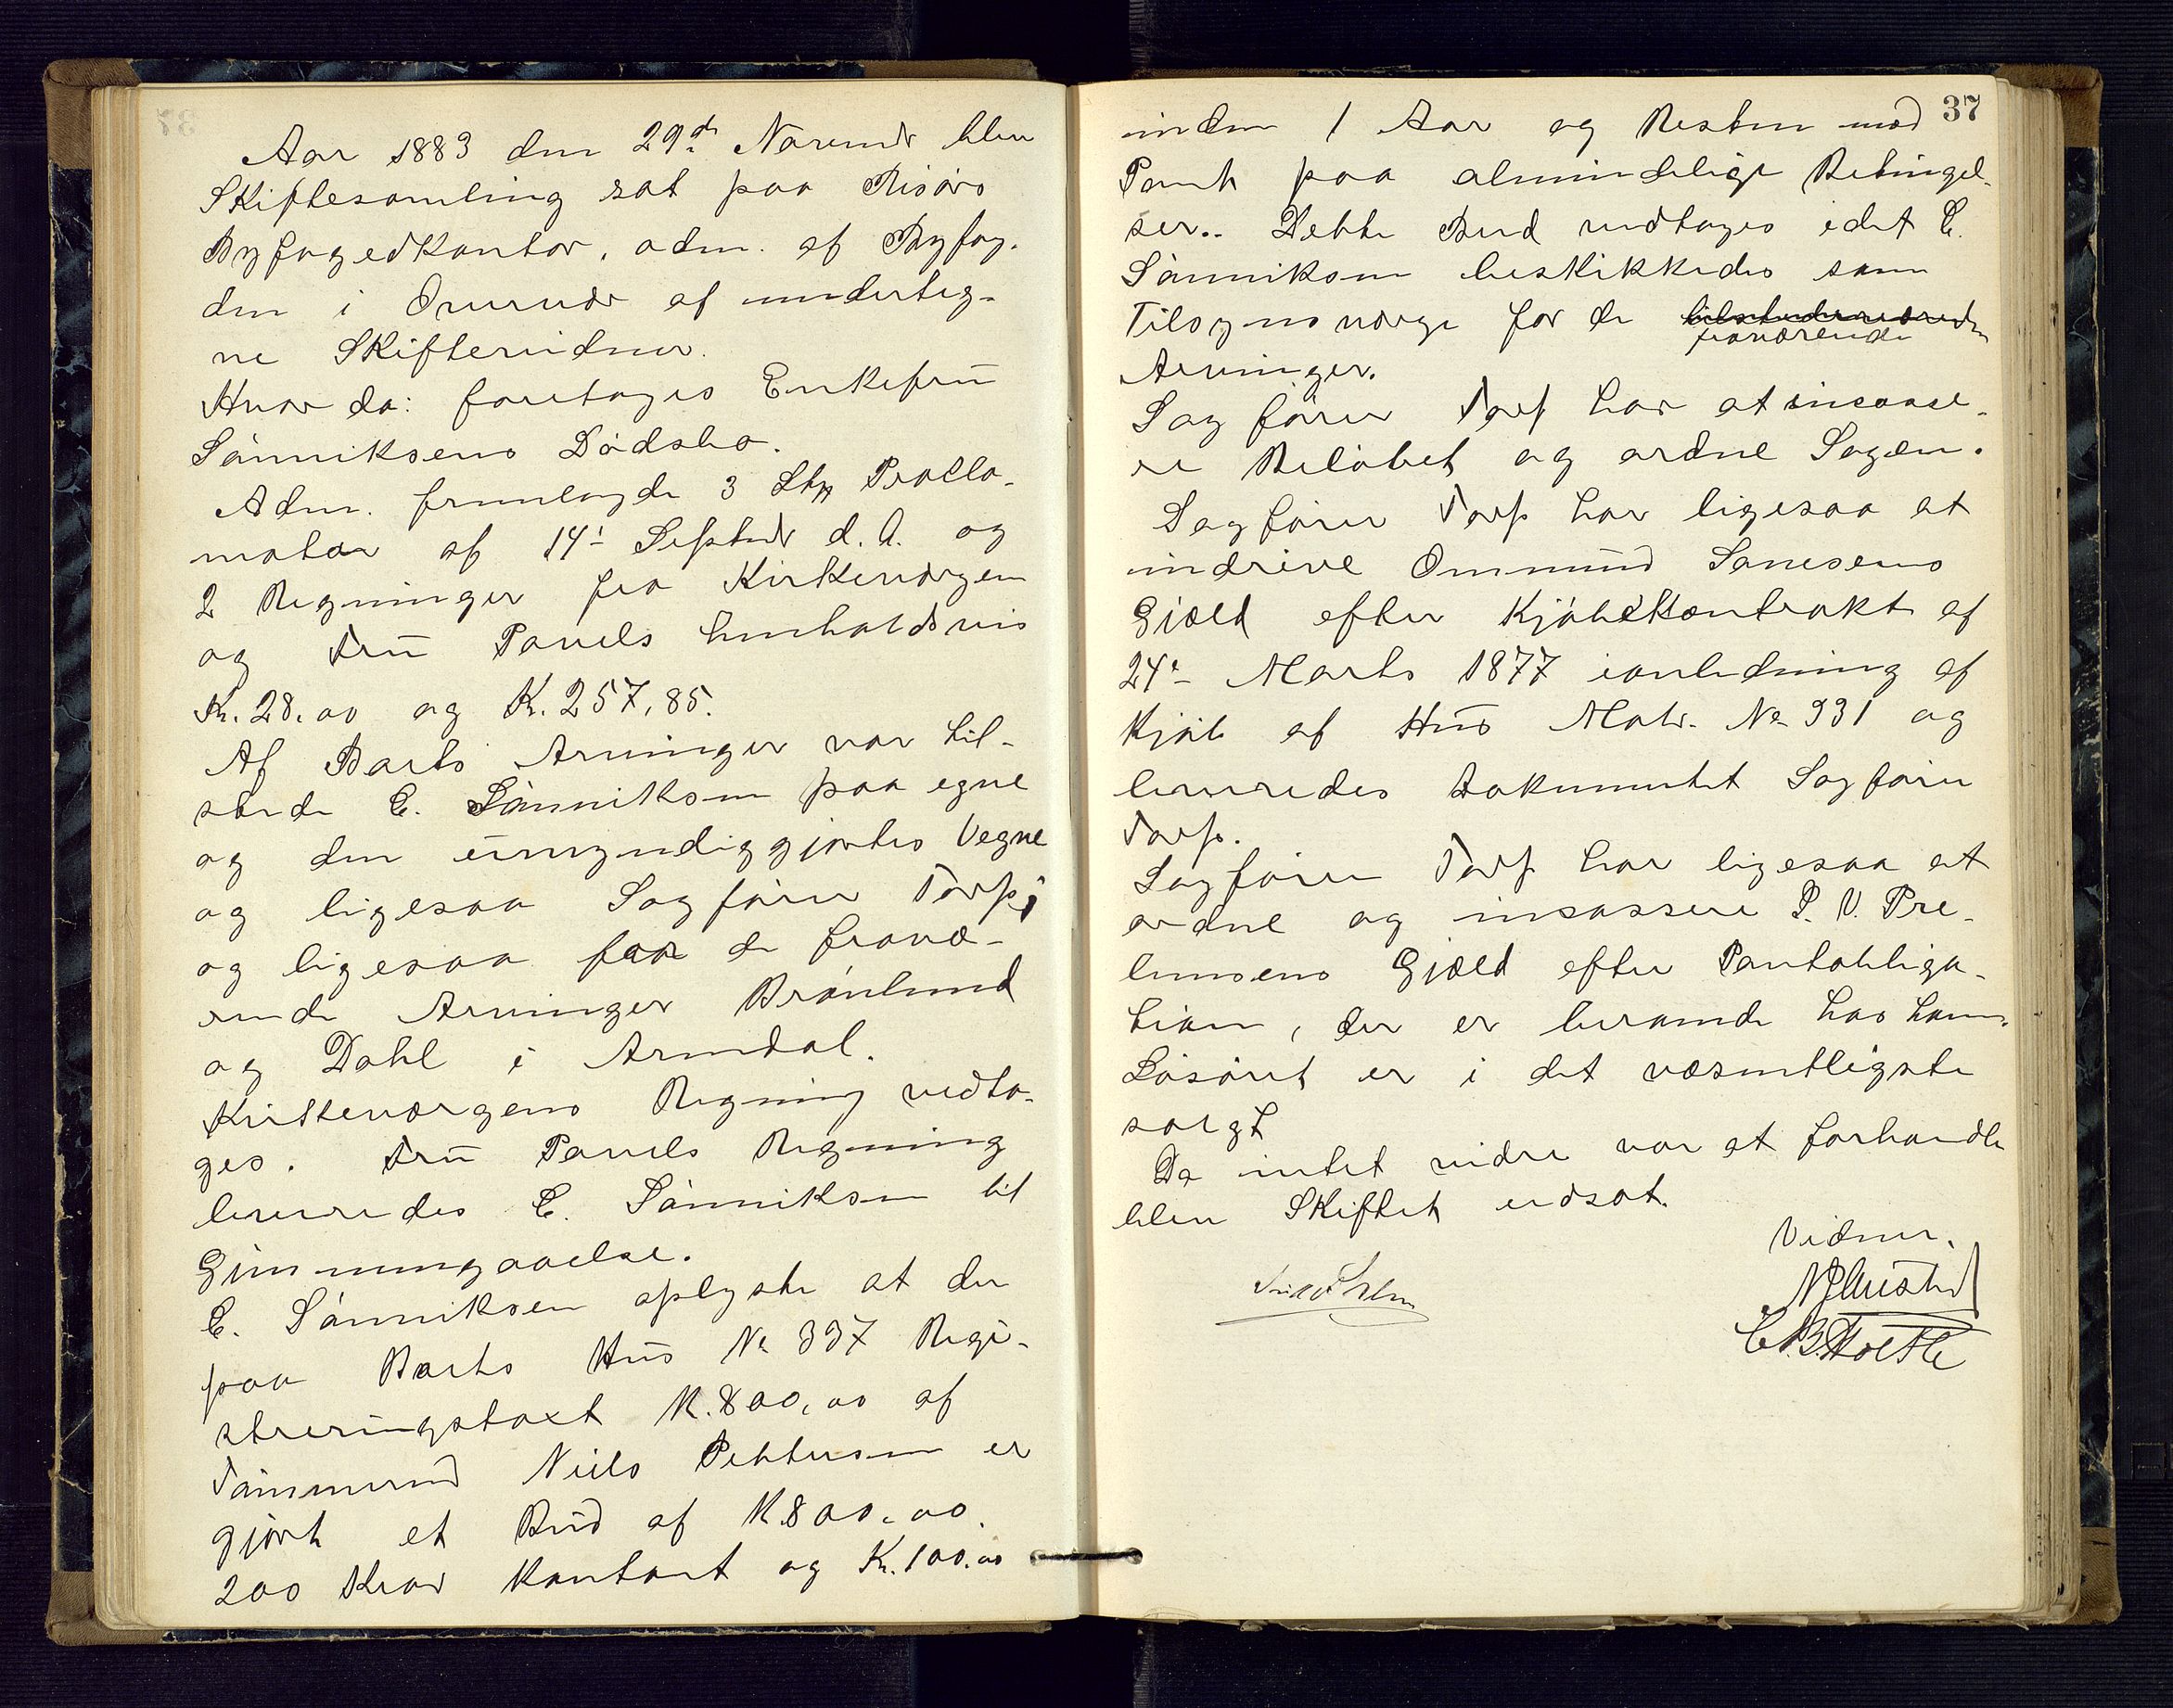 Aar 1883 den 29de Novembr blev
Skiftesamling sat paa Risørs
Byfogedkontor, adm. af Byfog-
den i Overvær af underteg-
ne Skiftevidner.
Hvor da: foretages Enkefru
Sønniksens Dødsbo.
Adm. fremlagde 3 Stk Procla-
mataer af 14' Septbr d. A. og
2 Regninger fra Kirkeværgen
og Fru Pavels henholdsvis
Kr. 28.00 og K. 257,85.
Af Boets Arvinger var til-
stede C. Sønniksen paa egne
og den umyndiggjortes Vegne
og ligesaa Sagfører Torp,
og ligesaa for de fravæ-
rende Arvinger Brønlund
og Dahl i Arendal.
Kirkeværgens Regning vedto-
ges. Fru Pavels Regning
leveredes C. Sønniksen til
Gjennemgaaelse.
C. Sønniksen oplyste at der
paa Boets Hus No 337 Regi-
streringstaxt K. 800,00 af
Tømmermd Niels Pettersen er
gjort et Bud af K. 800.00.
200 Kroner Kontant og Kr. 100.00
37
inden 1 Aar og Resten mod
Pant paa almindelige Betingel-
ser. Dette Bud vedtages idet C.
Sønniksen beskikkedes som
Tilsynsværge for de tilstedeværende
fraværende
Arvinger.
Sagfører Torp har at incasse-
re Beløbet og ordne Sagen.
Sagfører Torp har ligesaa at
inddrive Ommund Sanesens
Gjæld efter Kjøbekontrakt af
24e Marts 1877 ianledning af
Kjøb af Hus Matr. No 331 og
leveredes Dokumentet Sagfører
Torp.
Sagfører Torp har ligesaa at
ordne og incassere P. V. Pre-
bensens Gjæld efter Pantobliga-
tion, der er beroende hos ham.
Løsøret er i det væsentligste
solgt
Da intet videre var at forhandle
blev Skiftet udsat.
Vidner.